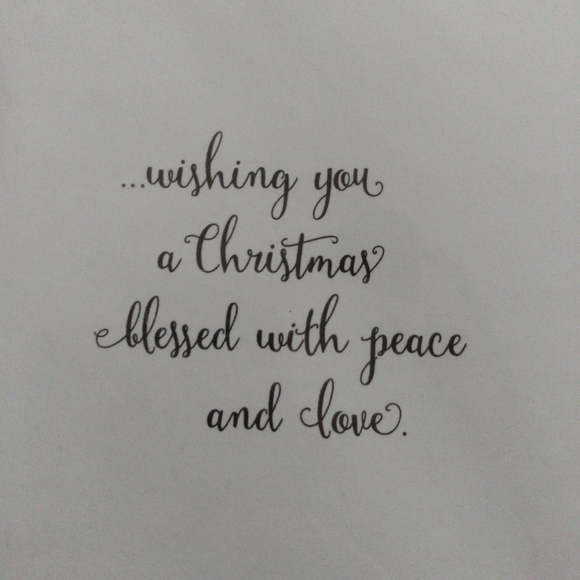 ...wishing you
a Christmas
blessed with peace
and love.